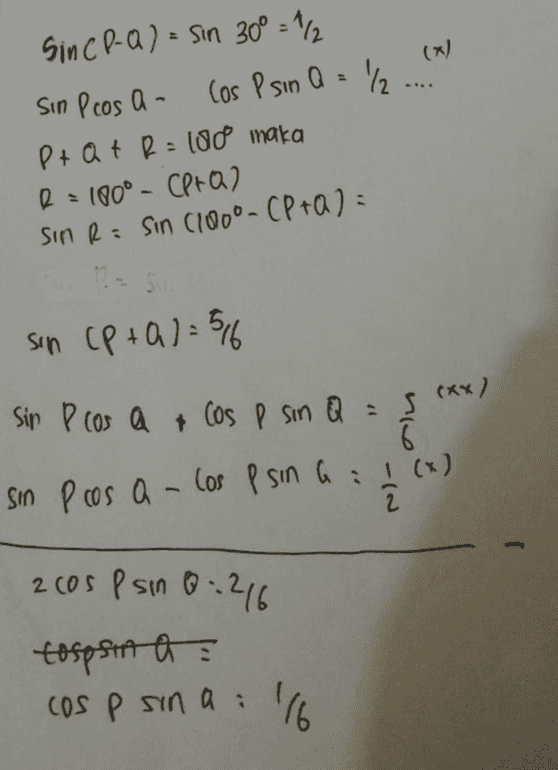 Sin (P-Q) = sin 30° = 1/2
sin P cos Q - cos P sin Q = 1/2 .... (x)
P + Q + R = 180° maka
R = 180° - (P+Q)
sin R = sin (180° - (P+Q) =
sin (P+Q) = 5/6
sin P cos Q + cos P sin Q = 5/6 (xx)
sin P cos Q - cos P sin Q = 1/2 (x)
2 cos P sin Q = 2/6
cos p sin Q =
cos p sin Q = 1/6